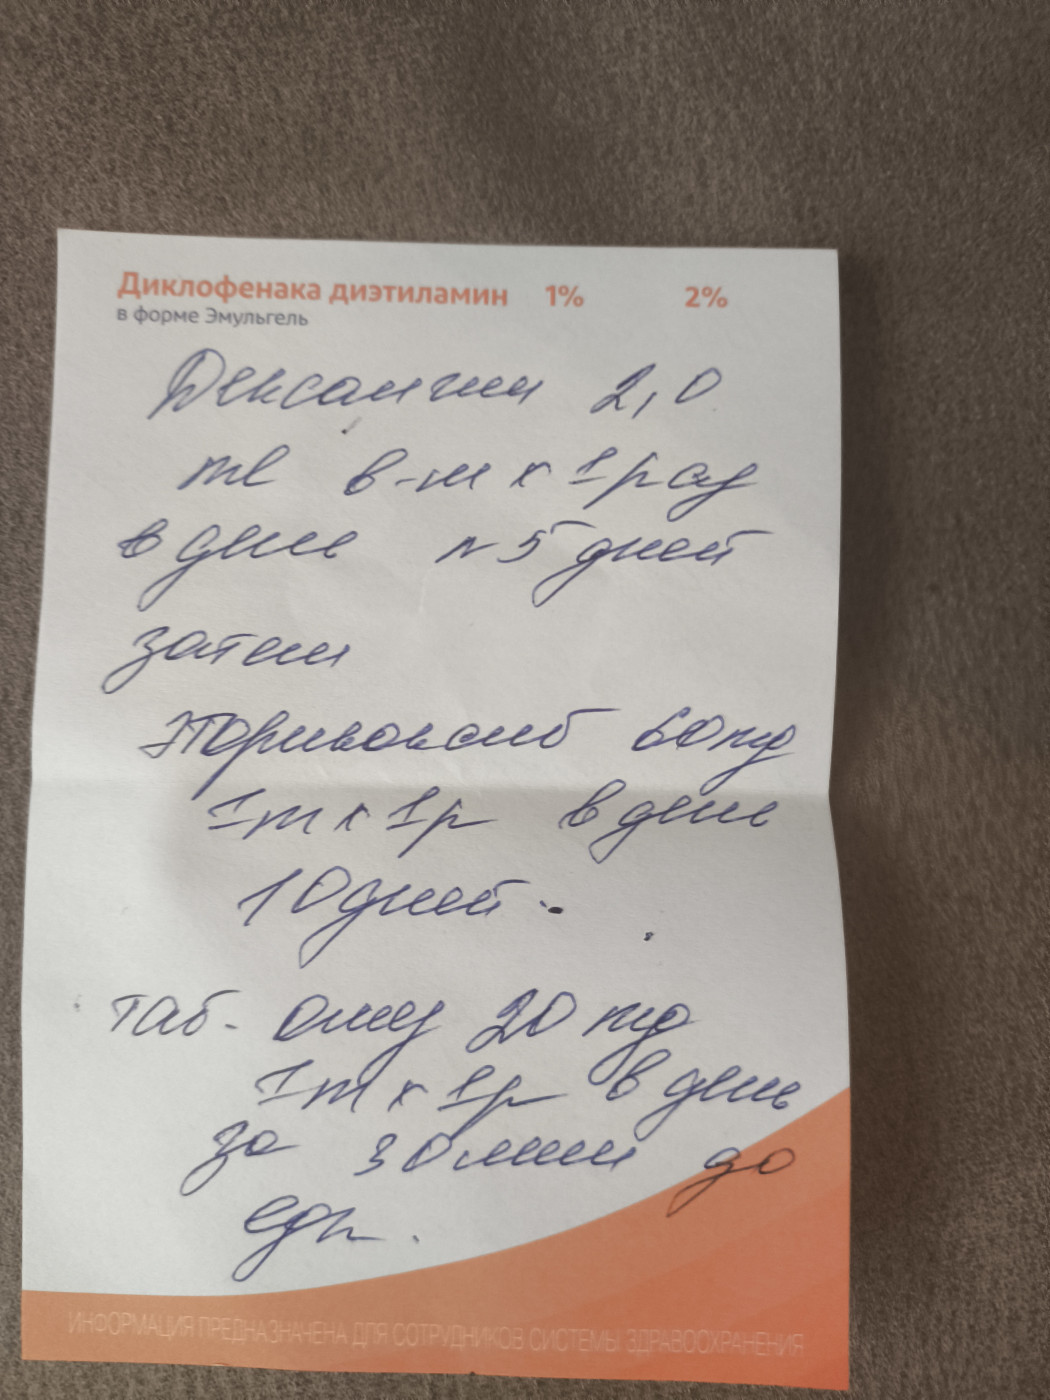 Диклофенака диэтиламин 1% 2%
в форме Эмульгель
Дексалгин 2,0
мл в-м х 1 раз
в день № 5 дней
затем
Эторикоксиб 60 мг
1т х 1р в день
10 дней.
таб. омез 20 мг
1т х 1р в день
за 30 мин до
еды.
ИНФОРМАЦИЯ ПРЕДНАЗНАЧЕНА ДЛЯ СОТРУДНИКОВ СИСТЕМЫ ЗДРАВООХРАНЕНИЯ